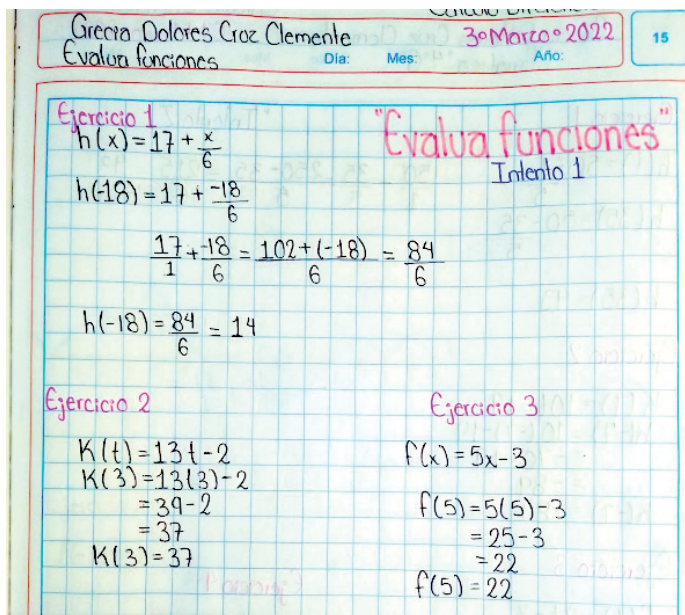 Grecia Dolores Croz Clemente
3°Marzo°2022
15
Evalua funciones
Dia: Mes: Año:
Ejercicio 1
"Evalua funciones"
Intento 1
h(x)=17+x/6
h(-18)=17+-18/6
17/1+-18/6=102+(-18)/6=84/6
h(-18)=84/6=14
Ejercicio 2
K(t)=13t-2
K(3)=13(3)-2
=39-2
=37
K(3)=37
Ejercicio 3
f(x)=5x-3
f(5)=5(5)-3
=25-3
=22
f(5)=22